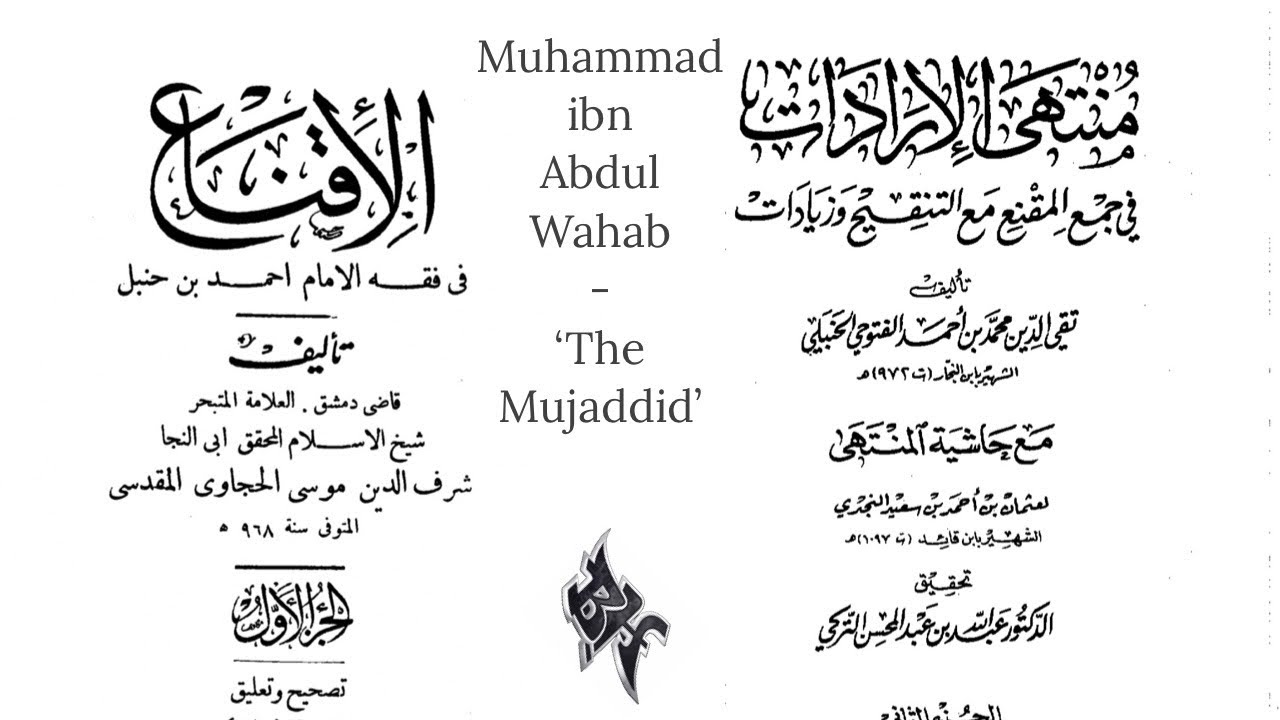 الإقناع
فى فقه الامام احمد بن حنبل
تأليف
قاضى دمشق . العلامة المتبحر
شيخ الاسلام المحقق ابى النجا
شرف الدين موسى الحجاوى المقدسى
المتوفى سنة ٩٦٨ ه
الجزء الأول
تصحيح وتعليق
Muhammad
ibn
Abdul
Wahab
-
‘The
Mujaddid’
مُنْتَهَى الإِرَادَات
في جَمْع المِقْنِع مَع التنقِيْح وَزيَادَات
تأليف
تقي الدِّين محمَّد بن أحمَد الفتوحي الحَنبَلي
الشهير بابن النجار (ت ٩٧٢)ه
مَع حَاشيَة المنْتَهَى
لعثمان بن أحمد بن سعيد النجدي
الشهير بابن قائد (ت ١٠٩٧)ه
تحقيق
الدّكتور عَبدالله بن عَبدالمحسن التركي